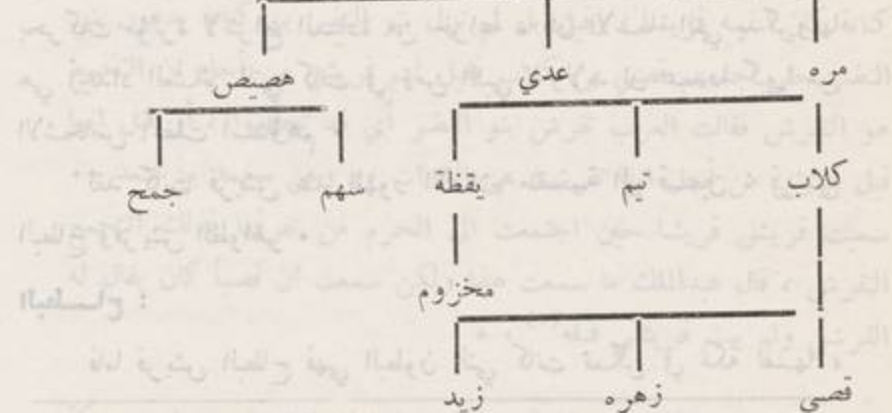 مره عدي هصيص
كلاب تيم يقظة سهم جمح
مخزوم
قصى زهره زيد